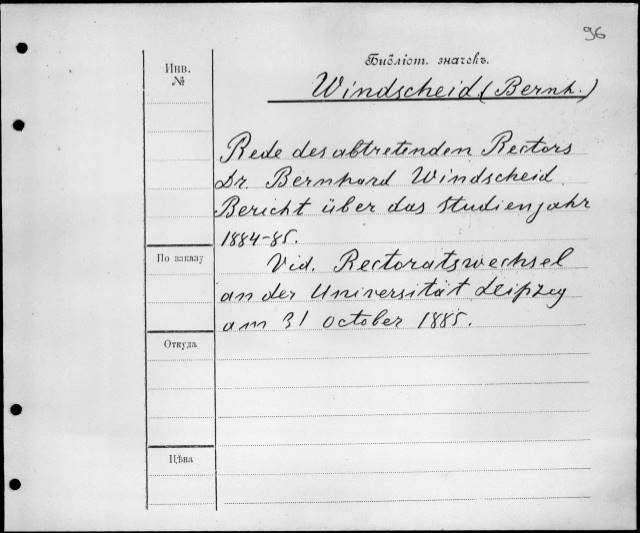 96
Инв.
№
Библіот. значекъ.
Windscheid (Bernh.)
Rede des abtretenden Rectors
Dr. Bernhard Windscheid.
Bericht über das Studienjahr
1884-85.
По заказу
Vid. Rectoratswechsel
an der Universität Leipzig
am 31 October 1885.
Откуда
Цѣна